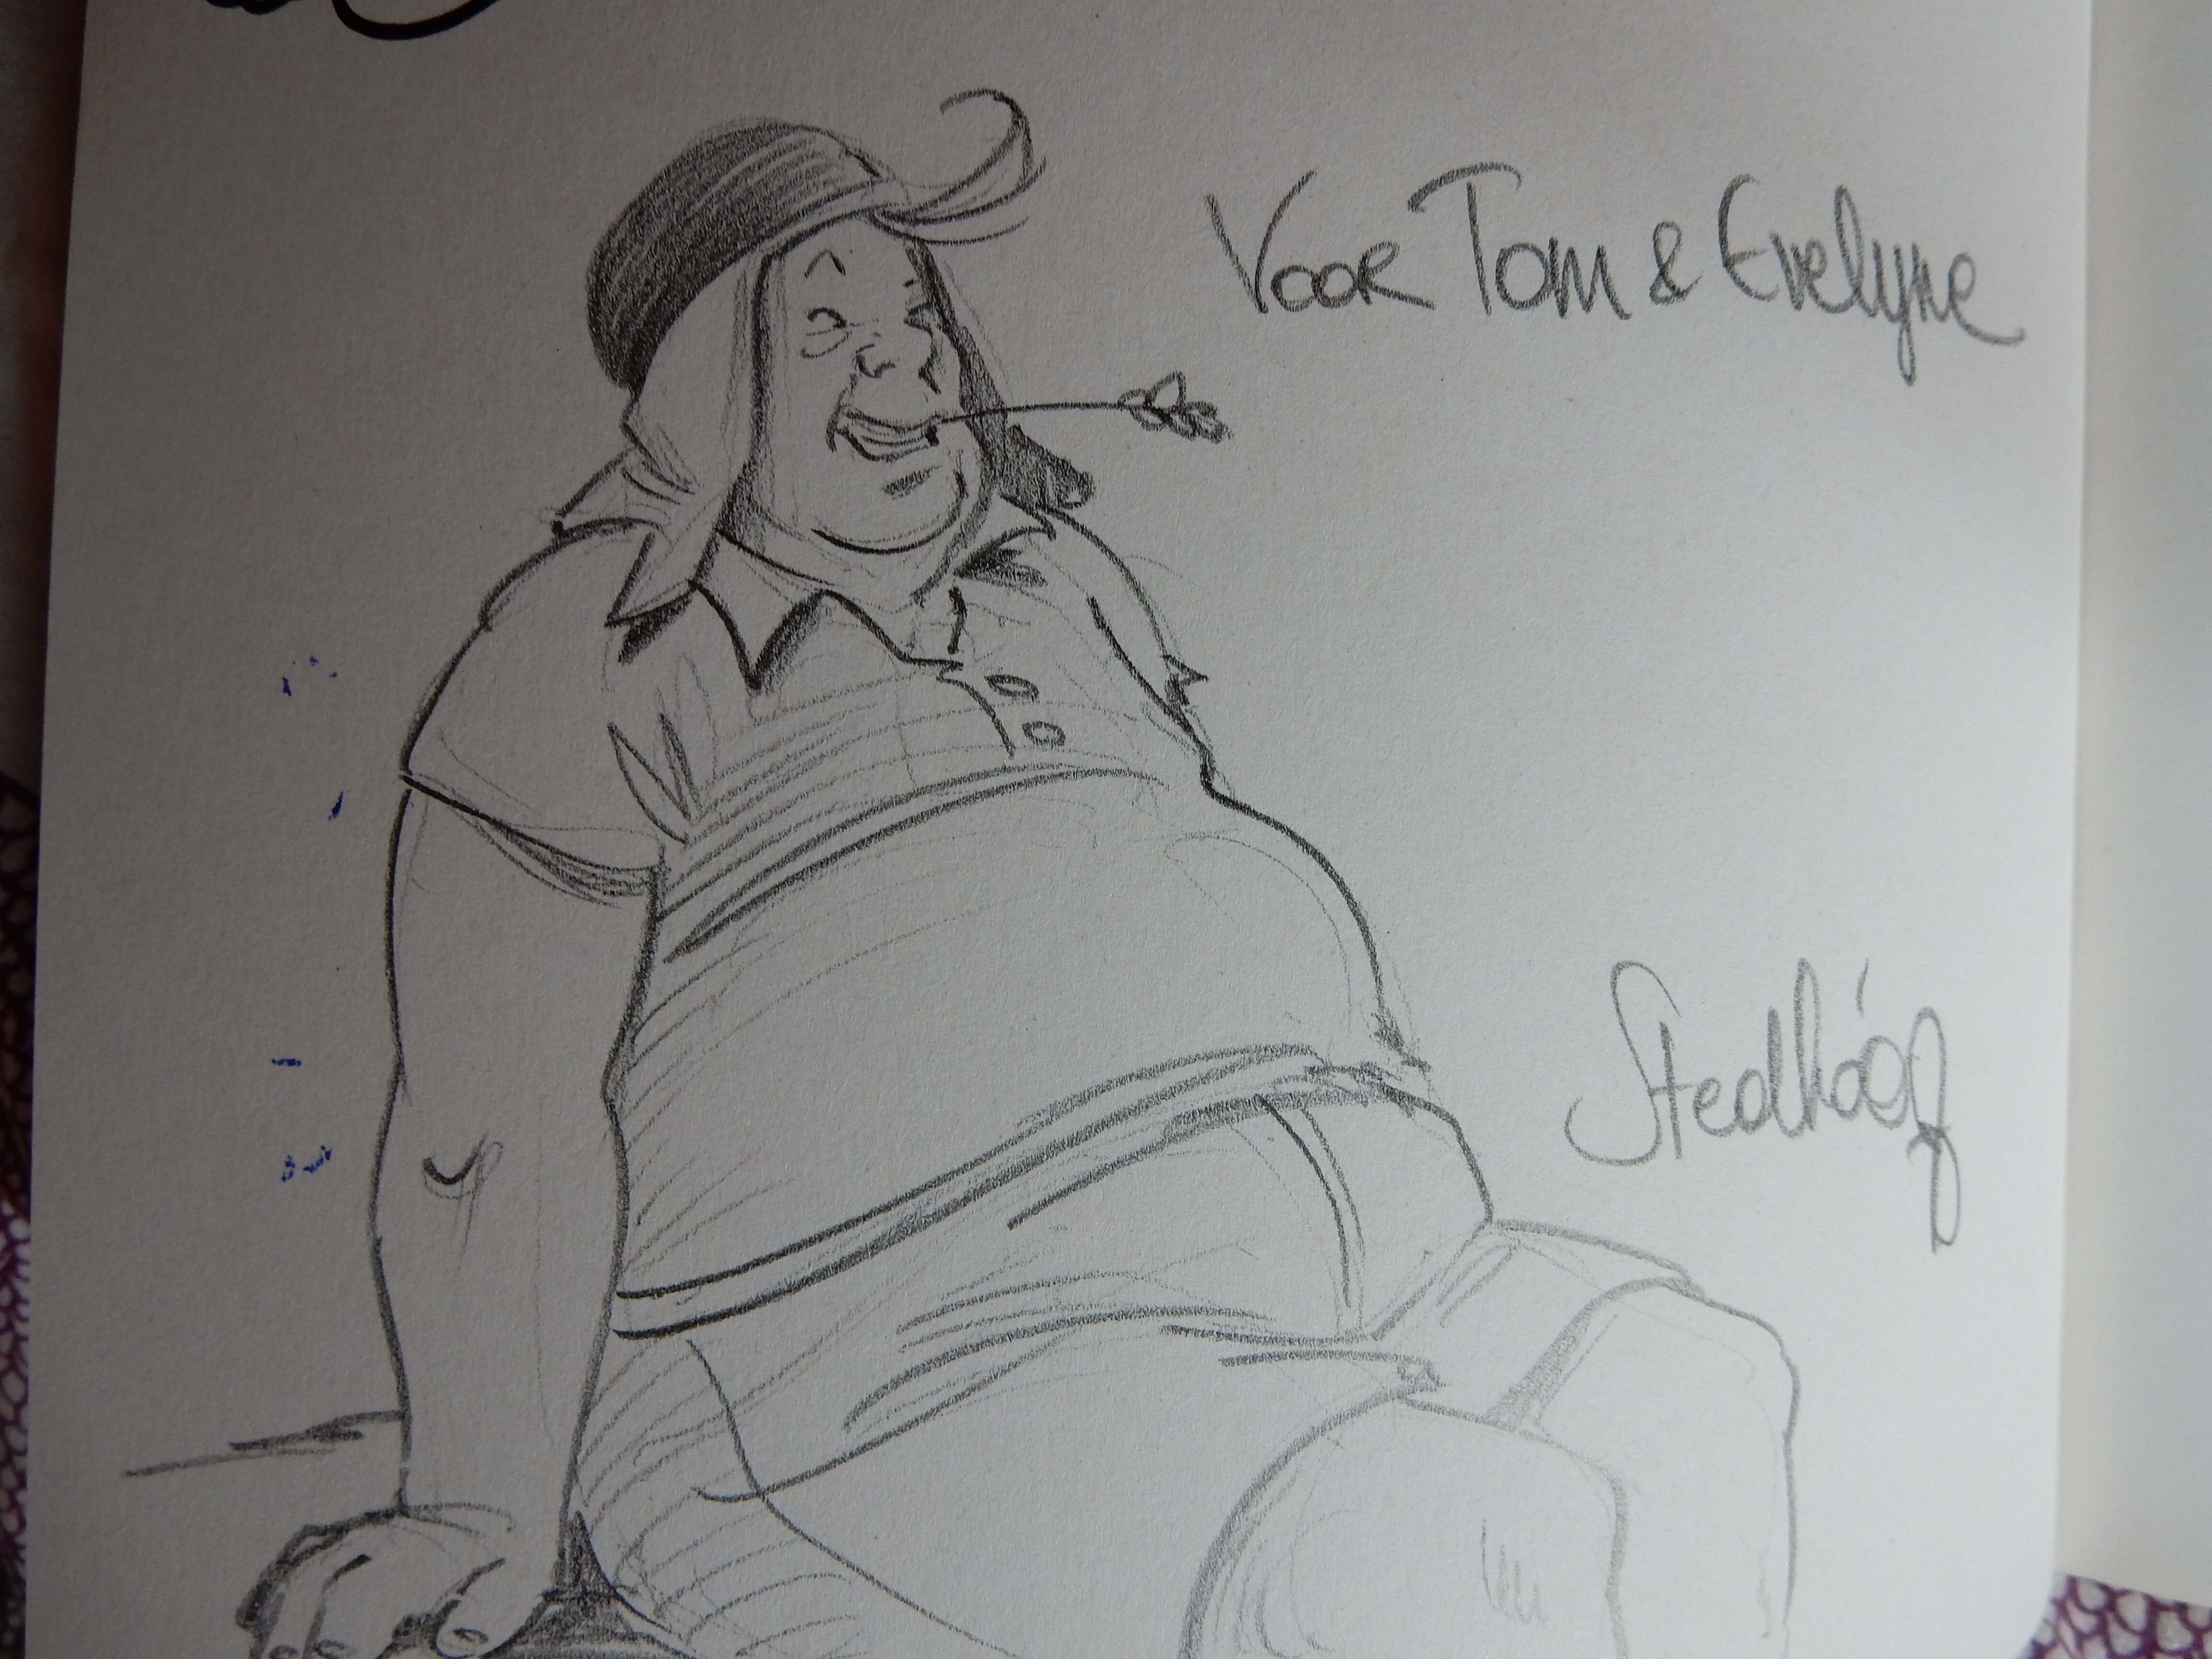 Voor Tom & Evelyne
Stedho